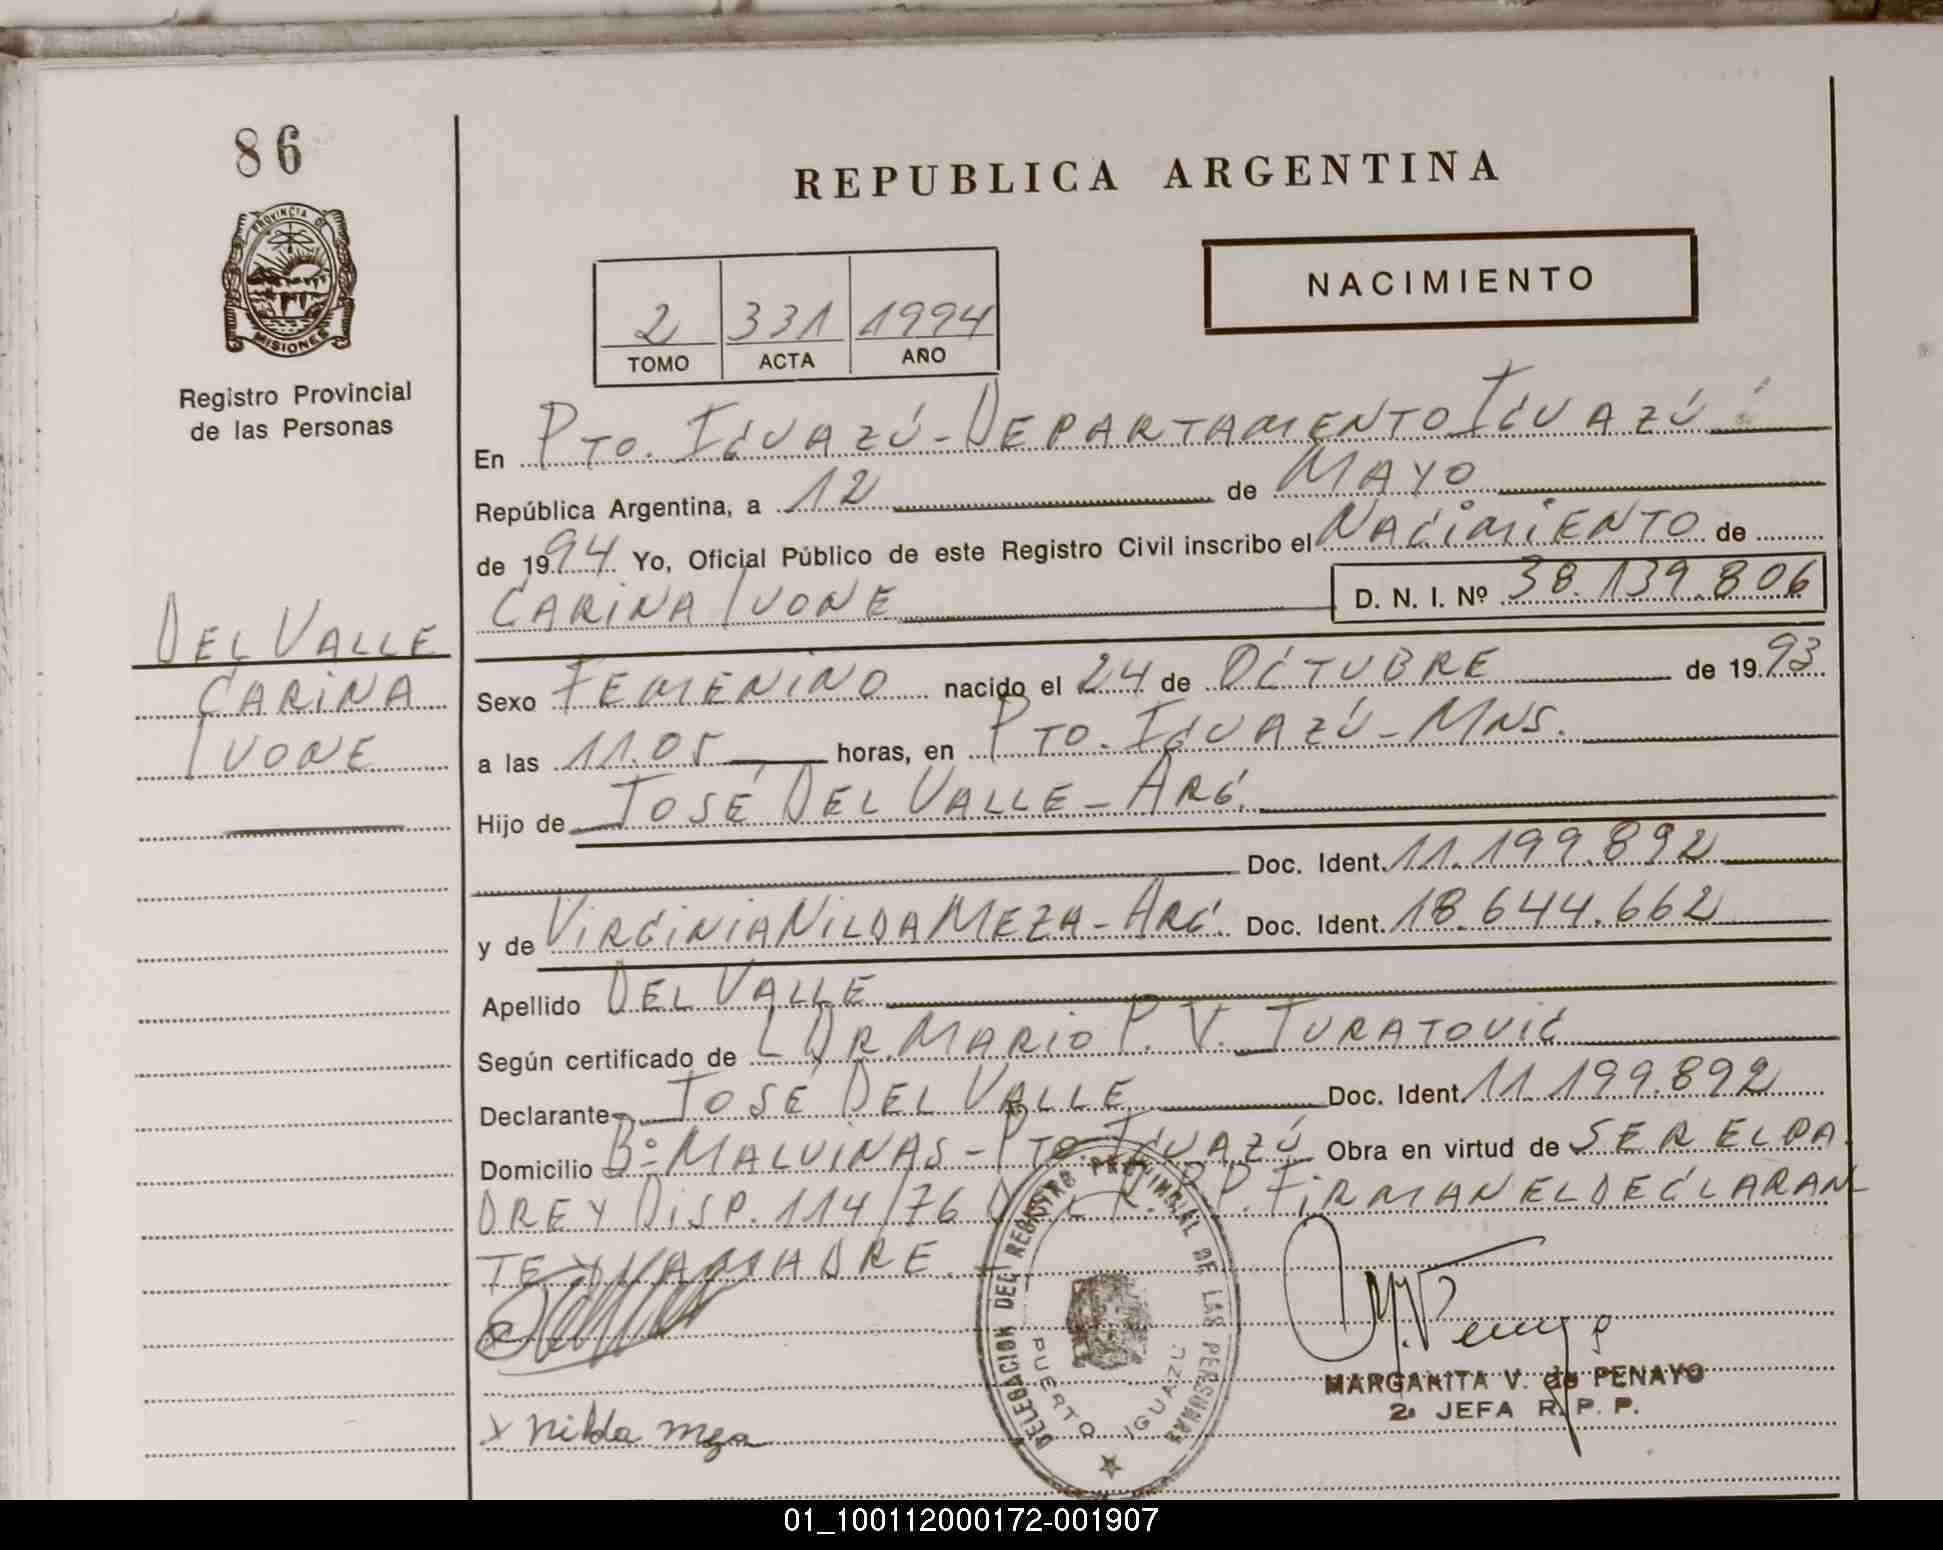 86
REPUBLICA ARGENTINA
PROVINCIA DE
MISIONES
Registro Provincial
de las Personas
NACIMIENTO
2 331 1994
TOMO ACTA AÑO
En PTO. IGUAZÚ - DEPARTAMENTO IGUAZÚ
República Argentina, a 12 de MAYO
de 1994 Yo, Oficial Público de este Registro Civil inscribo el NACIMIENTO de
CARINA IVONE D. N. I. Nº 38.139.806
DEL VALLE
CARINA
IVONE
Sexo FEMENINO nacido el 24 de OCTUBRE de 1993
a las 11.05 horas, en PTO. IGUAZÚ - MNS.
Hijo de JOSÉ DEL VALLE - ARG.
Doc. Ident. 11.199.892
y de VIRGINIA NILDA MEZA - ARG. Doc. Ident. 18.644.662
Apellido DEL VALLE
Según certificado de L DR. MARIO P. V. JURATOVIC
Declarante JOSÉ DEL VALLE Doc. Ident. 11.199.892
Domicilio Bº MALVINAS - PTO. IGUAZÚ Obra en virtud de SER EL PA
DRE Y DISP. 114/76 D. R. P. P. FIRMAN EL DECLARAN
TE Y LA MADRE.
DELEGACION DEL REGISTRO PROVINCIAL DE LAS PERSONAS
PUERTO IGUAZU
MARGARITA V. de PENAYO
2ª JEFA R. P. P.
x Nilda Meza
01_100112000172-001907